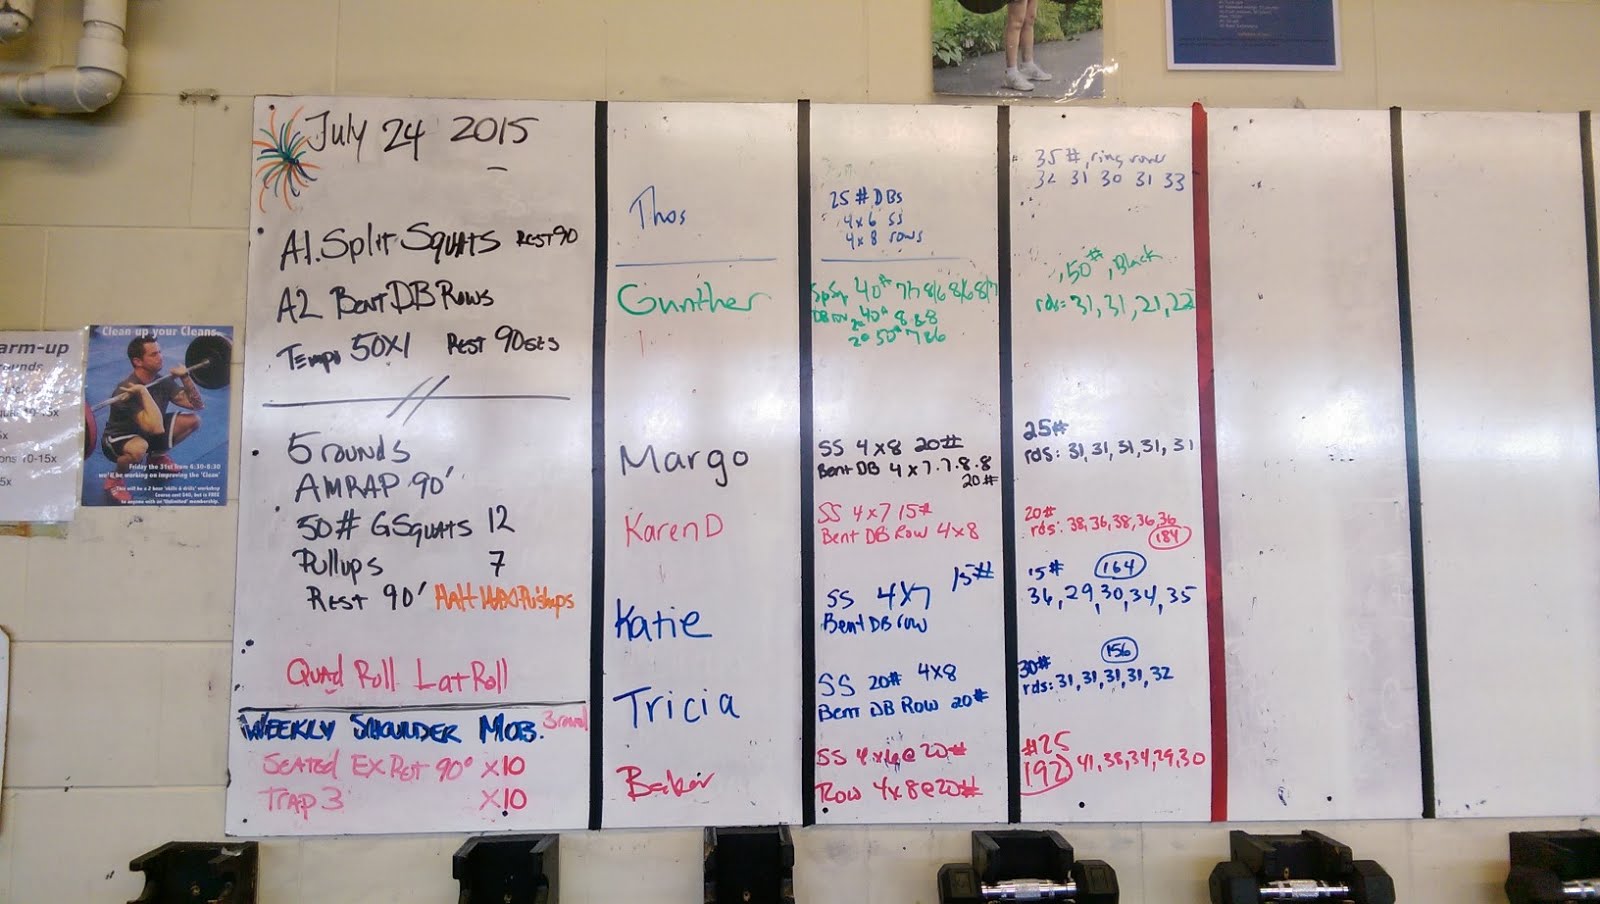 July 24 2015
A1. Split Squats Rest 90
A2 Bent DB Rows
Tempo 50X1 Rest 90secs
5 rounds
AMRAP 90'
50# GSquats 12
Pullups 7
Rest 90'
Quad Roll Lat Roll
Weekly Shoulder Mob.
Seated Ex Rot 90° x10
Trap 3 x10
Thos
25# DBs
4x6 SS
4x8 rows
35#, ring rows
32 31 30 31 33
Gunther
40# 77 8/6 8/6 8/7
40# 8 8 8
50# 7 8 6
, 50#, Black
rds: 31, 31, 21, 22
Margo
SS 4x8 20#
Bent DB 4x7.7.8.8
20#
25#
rds: 31, 31, 31, 31, 31
Karen D
SS 4x7 15#
Bent DB Row 4x8
20#
rds: 38, 36, 38, 36, 36
184
Katie
SS 4x7 15#
Bent DB row
15# 164
36, 29, 30, 34, 35
Tricia
SS 20# 4x8
Bent DB Row 20#
30# 156
rds: 31, 31, 31, 31, 32
SS 4x6@20#
Row 4x8@20#
#25
41, 38, 34, 29, 30
Clean up your Cleans
Friday the 31st from 6:30-8:30
we'll be working on improving the 'Clean'
arm-up